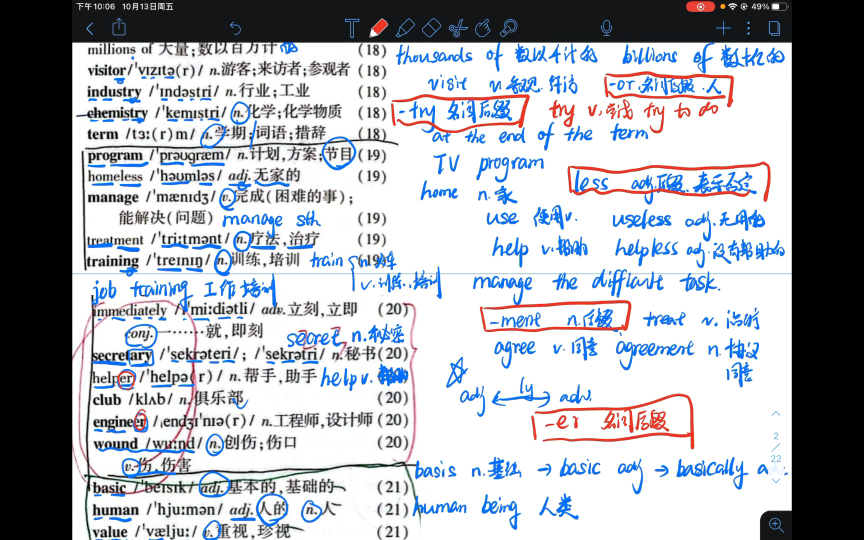 下午10:06 10月13日周五
49%
millions of 大量;数以百万计的 (18)
thousands of 数以千计的 billions of 数十亿的
visitor/ˈvɪzɪtə(r)/ n.游客;来访者;参观者 (18)
visit v.参观、拜访 -or.名词后缀.人
industry /ˈɪndəstri/ n.行业;工业 (18)
chemistry /ˈkemɪstri/ n.化学;化学物质 (18)
-try 名词后缀 try v.尝试 try to do
term /tɜː(r)m/ n.学期;词语;措辞 (18)
at the end of the term
program /ˈprəʊɡræm/ n.计划,方案;节目 (19)
TV program
homeless /ˈhəʊmləs/ adj.无家的 (19)
home n.家 less adj.后缀.表示否定
manage /ˈmænɪdʒ/ v.完成(困难的事);
能解决(问题) manage sth (19)
use 使用v. useless adj.无用的
treatment /ˈtriːtmənt/ n.疗法,治疗 (19)
help v.帮助 helpless adj.没有帮助的
training /ˈtreɪnɪŋ/ n.训练,培训 (19)
train n.火车
v.训练、培训
manage the difficult task.
job training 工作培训
immediately /ɪˈmiːdiətli/ adv.立刻,立即 (20)
conj.一……就,即刻
-ment n.后缀 treat v.治疗
secret n.秘密
secretary /ˈsekrəteri/; /ˈsekrətri/ n.秘书 (20)
agree v.同意 agreement n.协议
同意
helper /ˈhelpə(r)/ n.帮手,助手 (20)
help v.
adj ly adv.
club /klʌb/ n.俱乐部 (20)
engineer /ˌendʒɪˈnɪə(r)/ n.工程师,设计师 (20)
-er 名词后缀
wound /wuːnd/ n.创伤;伤口 (20)
v.伤,伤害
basis n.基础 → basic adj → basically a
basic /ˈbeɪsɪk/ adj.基本的,基础的 (21)
human /ˈhjuːmən/ adj.人的 n.人 (21)
human being 人类
value /ˈvæljuː/ v.重视,珍视 (21)
2
22